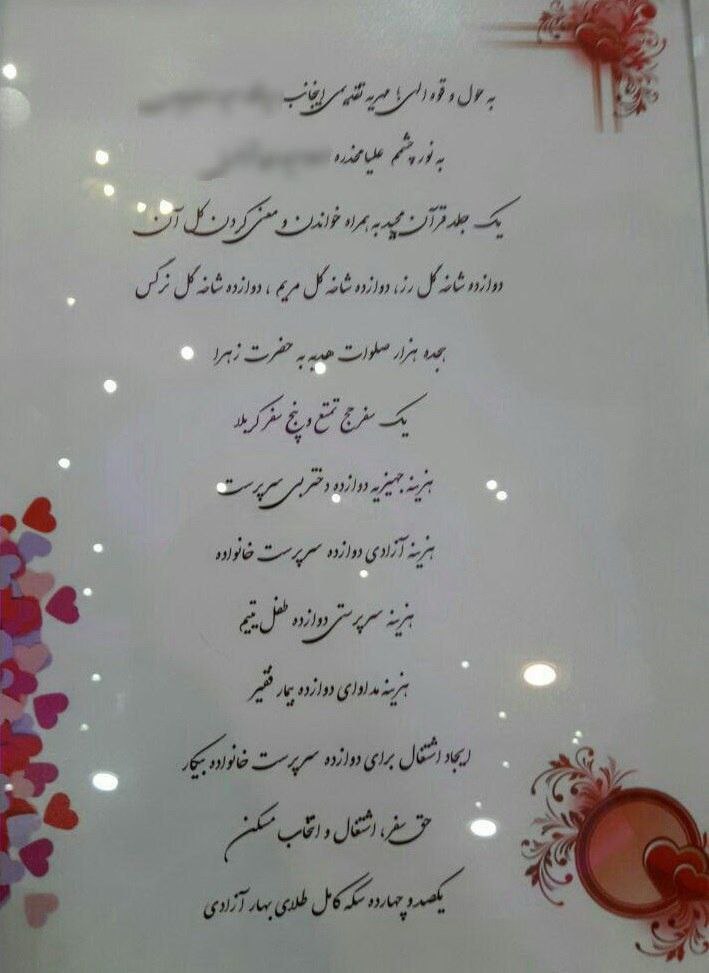 به حول و قوه الهی با مهریه تقدیمی اینجانب
به نور چشمم علیامخدره
یک جلد قرآن مجید به همراه خواندن و معنی کردن کل آن
دوازده شاخه گل رز، دوازده شاخه گل مریم، دوازده شاخه گل نرگس
هجده هزار صلوات هدیه به حضرت زهرا
یک سفر حج تمتع و پنج سفر کربلا
هزینه جهیزیه دوازده دختر بی سرپرست
هزینه آزادی دوازده سرپرست خانواده
هزینه سرپرستی دوازده طفل یتیم
هزینه مداوای دوازده بیمار فقیر
ایجاد اشتغال برای دوازده سرپرست خانواده بیکار
حق سفر، اشتغال و انتخاب مسکن
یکصد و چهارده سکه کامل طلای بهار آزادی